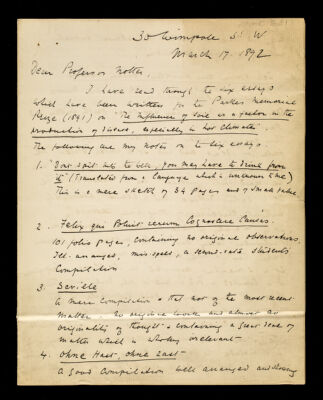 30 Wimpole St. W
March 17. 1892
Dear Professor Notter,
I have read through the six essays
which have been written for the Parkes Memorial
Prize (1891) on "The Influence of Soil as a factor in the
production of disease, especially in hot climates".
The following are my notes on the six essays.
1. "Don't spit into the well, you may have to drink from
it" (Translated from a language which is unknown to me)
This is a mere sketch of 34 pages and of small value.
2. Felix qui Potuit rerum Cognoscere Causas.
101 folio pages, containing no original observations.
Ill-arranged, mis-spelt, a second-rate students
Compilation
3. Saville
A mere compilation & that not of the most recent
matter. No original work and almost no
originality of thought & containing a great deal of
matter which is wholly irrelevant
4. Ohne Hast, ohne Rast
A good Compilation well arranged and showing